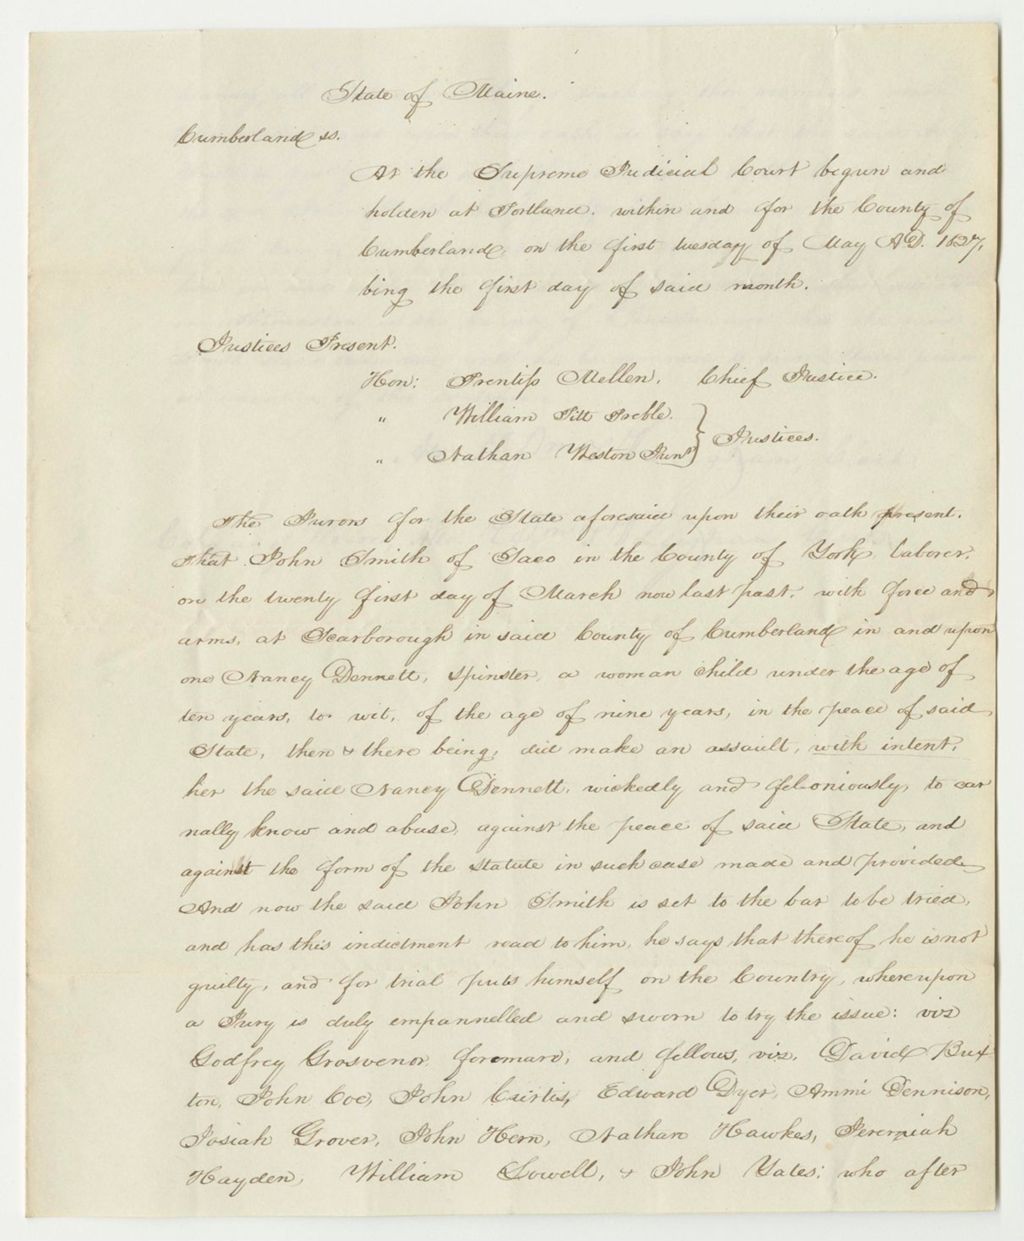 State of Maine.
Cumberland ss.
At the Supreme Judicial Court begun and
holden at Portland, within and for the County of
Cumberland, on the first tuesday of May AD. 1827,
bing the first day of said month.
Justices Present.
Hon: Prentiss Mellen, Chief Justice.
" William Pitt Preble.
" Nathan Weston Junr } Justices.
The Jurors for the State aforesaid upon their oath present.
that John Smith of Saco in the County of York, laborer,
on the twenty first day of March now last past, with force and
arms, at Scarborough in said County of Cumberland in and upon
one Nancy Dennett, spinster, a woman child under the age of
ten years, to wit, of the age of nine years, in the peace of said
State, then & there being, did make an assault, with intent,
her the said Nancy Dennett, wickedly and feloniously, to car
nally know and abuse, against the peace of said State, and
against the form of the statute in such case made and provided
And now the said John Smith is set to the bar to be tried,
and has this indictment read to him, he says that thereof he is not
guilty, and for trial puts himself on the Country, whereupon
a Jury is duly empannelled and sworn to try the issue: viz
Godfrey Grosvenor, foreman, and fellows, viz. David Bux
ton, John Coe, John Curtis, Edward Dyer, Ammi Dennison,
Josiah Grover, John Hern, Nathan Hawkes, Jeremiah
Hayden, William Lowell, & John Yates: who after